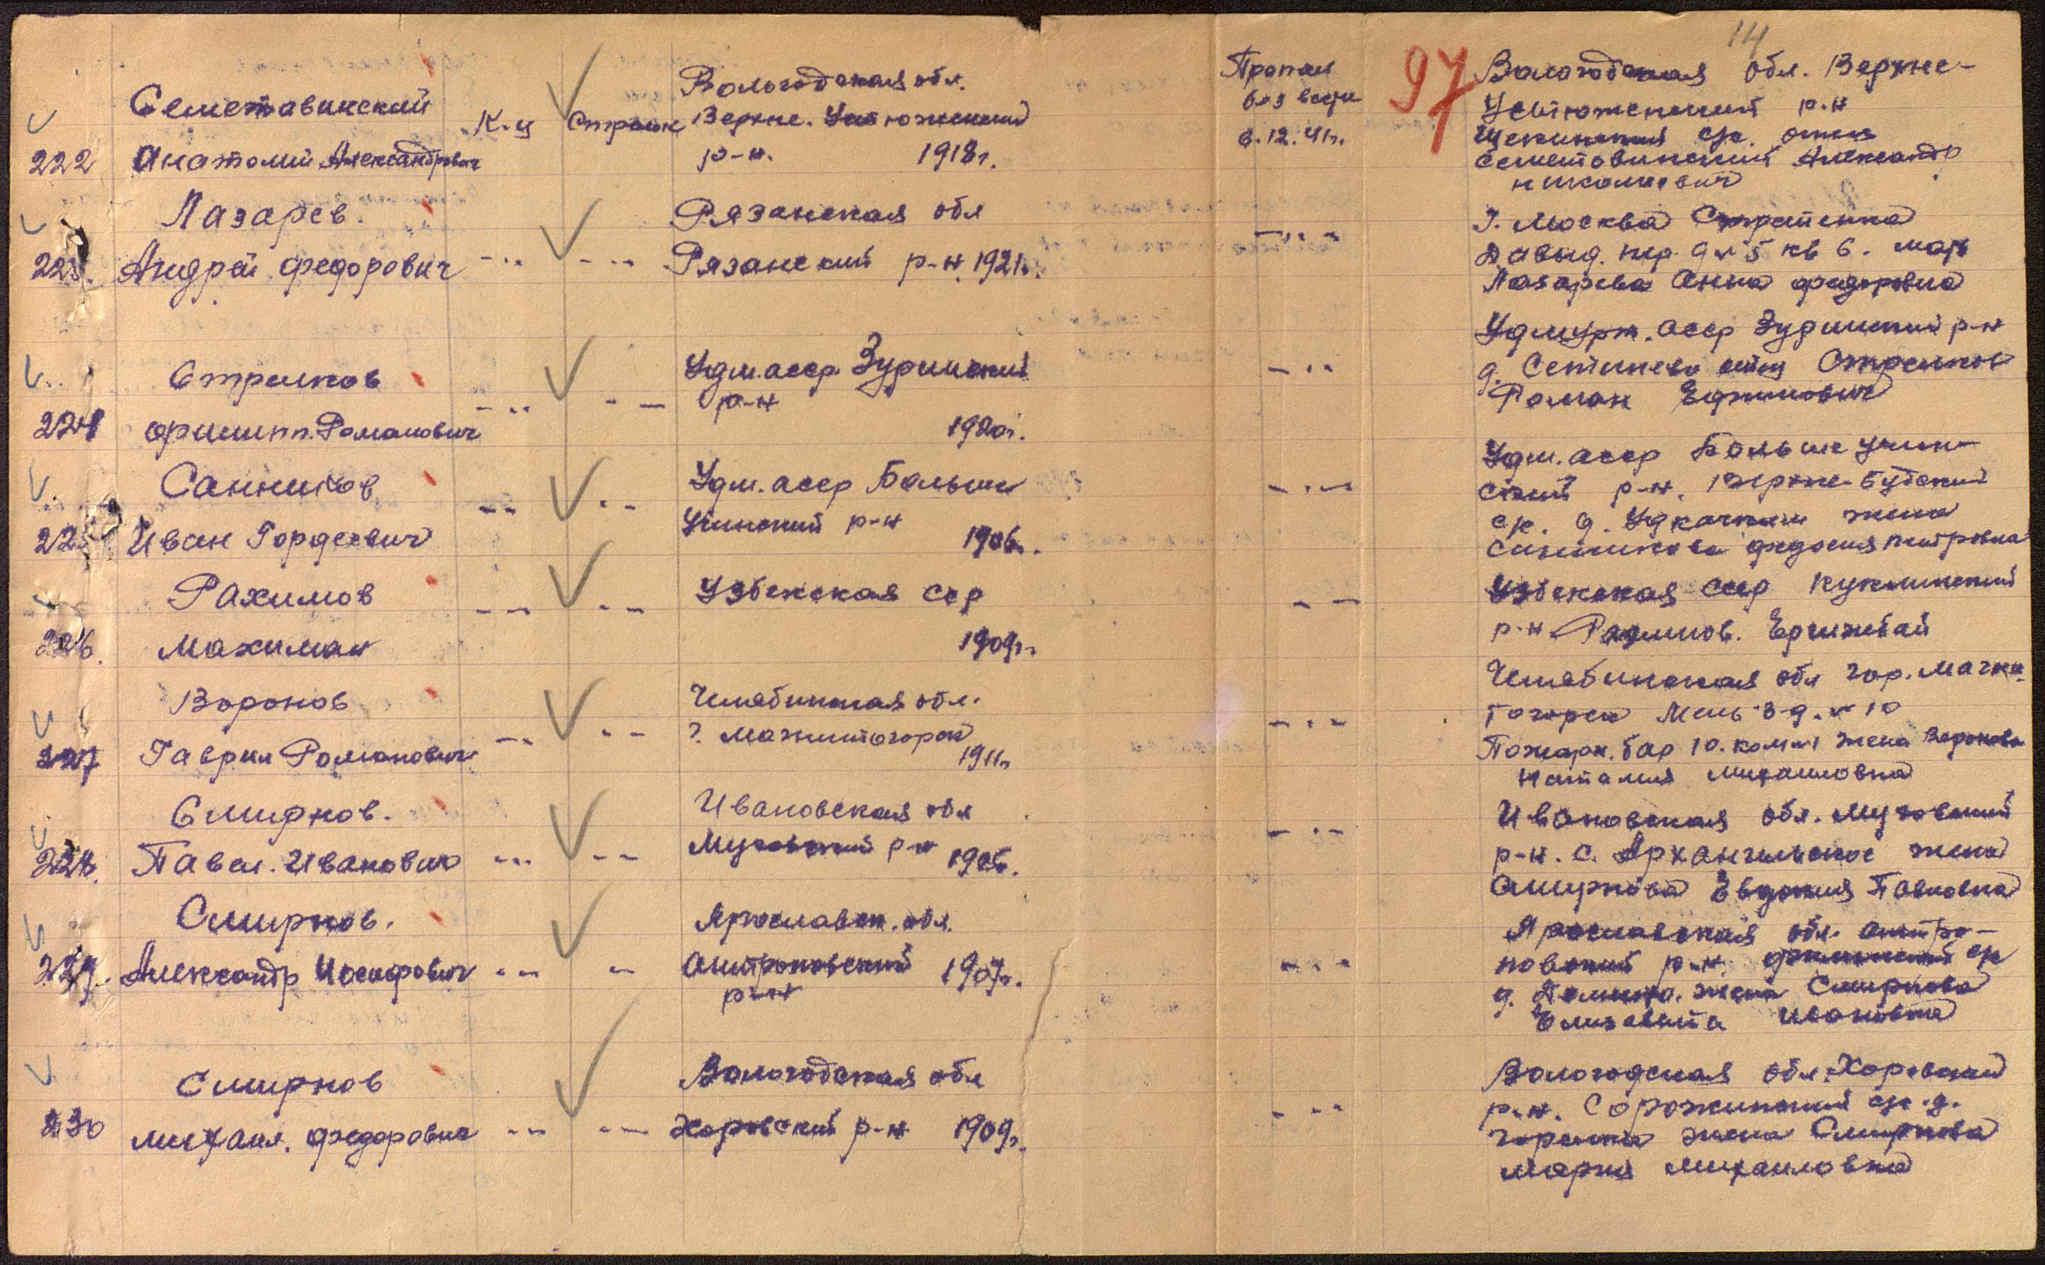 14
97
Семетавинский
222 Анатолий Александрович
К-ц Стрелк
Вологодская обл.
Верхне. Устюженский
р-н. 1918г.
Пропал
без вести
6.12.41г.
Вологодская обл. Верхне-
Устюженский р-н
Щекинский с/с. отец
Семетовинский Александр
николаевич
Лазарев.
223. Андрей федорович
-"- -"-
Рязанская обл
Рязанский р-н. 1921г.
-"-
Г. Москва Стретенка
Давыд. пер. д № 5 кв 6. мать
Лазарева Анна федоровна
Стрелков
224 филипп. Романович
-"- -"-
Удм. асср. Зуринский
р-н
1920г.
-"-
Удмурт. асср Зуринский р-н
д. Сетинево отец Стрелков
Роман Ефимович
Санников
225 Иван Гордеевич
-"- -"-
Удм. асср Больше
Учинский р-н 1906г.
-"-
Удм. асср Больше Учин-
ский р-н. Верхне-
с/с. д. жена
Санникова федосия Петровна
Рахимов
226. Махиман
-"- -"-
Узбекская сср
1909г.
-"-
Узбекская сср
р-н Рахимов.
Воронов
227 Гаврил Романович
-"- -"-
Челябинская обл.
г. Магнитогорск
1911г
-"-
Челябинская обл гор. Магни-
тогорск д. № 10
Пожарн. бар 10. ком №1 жена Воронова
Наталия михаиловна
Смирнов.
228. Павел. Иванович
-"- -"-
Ивановская обл
Муговский р-н 1905г.
-"-
Ивановская обл. Мугов­ский
р-н. с. Архангельское жена
Смирнова Евдокия Павловна
Смирнов.
229. Александр Иосифович
-"- -"-
Ярославск. обл.
Антроповский 1907г.
р-н
-"-
Ярославская обл. антро-
повский р-н. с/с
д. жена Смирнова
Елизавета Ивановна
Смирнов
230 михаил. федорович
-"- -"-
Вологодская обл
Харовский р-н 1909г.
-"-
Вологодская обл. Харовский
р-н. Сорожинский с/с. д.
Горелка жена Смирнова
Мария михаиловна